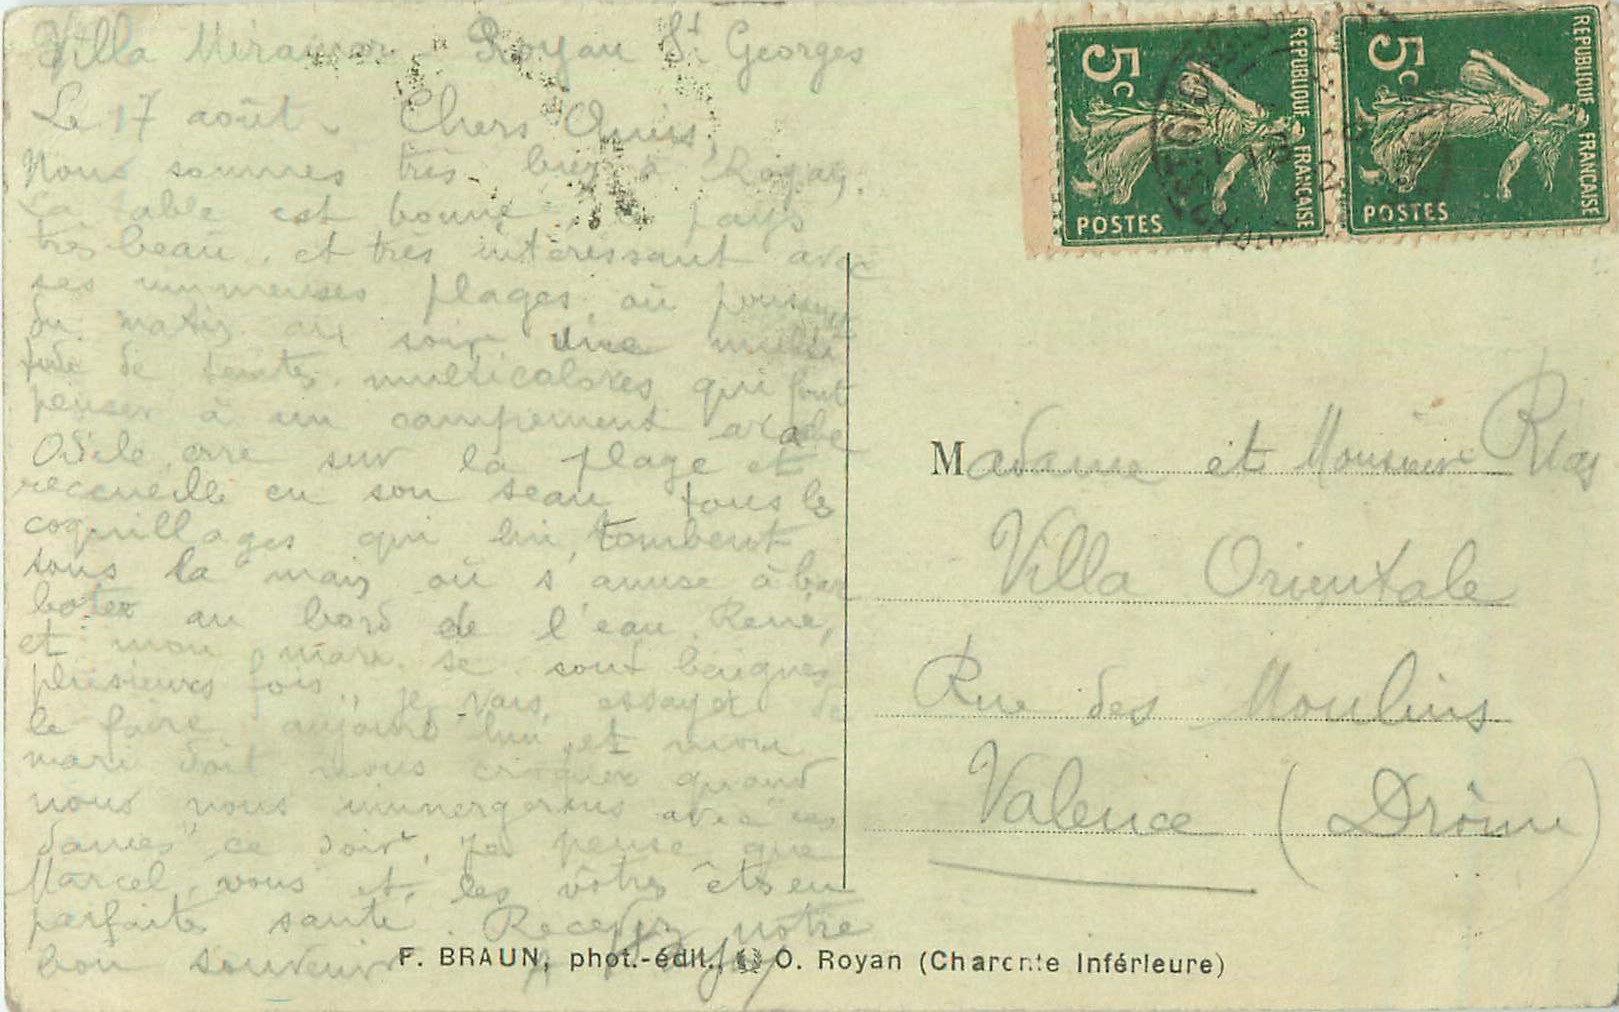 Villa Miramar - Royan St Georges
Le 17 août. Chers Amis,
Nous sommes très bien à Royan.
La table est bonne, pays
très beau, et très intéressant avec
ses immenses plages où poussent
du matin au soir une multi
tude de tentes multicolores qui font
penser à un campement arabe
Odile erre sur la plage et
recceuille en son seau tous les
coquillages qui lui tombent
sous la main où s'amuse à bar
boter au bord de l'eau. René,
et mon mari se sont baignés
plusieurs fois, je vais essayer de
le faire aujourd'hui et mon
mari doit nous croquer quand
nous nous immergerons avec "ces
dames" ce soir. Je pense que
Marcel, vous et les vôtres êtes en
parfaite santé. Recevez notre
bon souvenir
5c REPUBLIQUE FRANÇAISE POSTES
5c REPUBLIQUE FRANÇAISE POSTES
Madame et Monsieur
Villa Orientale
Rue des Moulins
Valence (Drôme)
F. BRAUN, phot.-édit., O. Royan (Charente Inférieure)